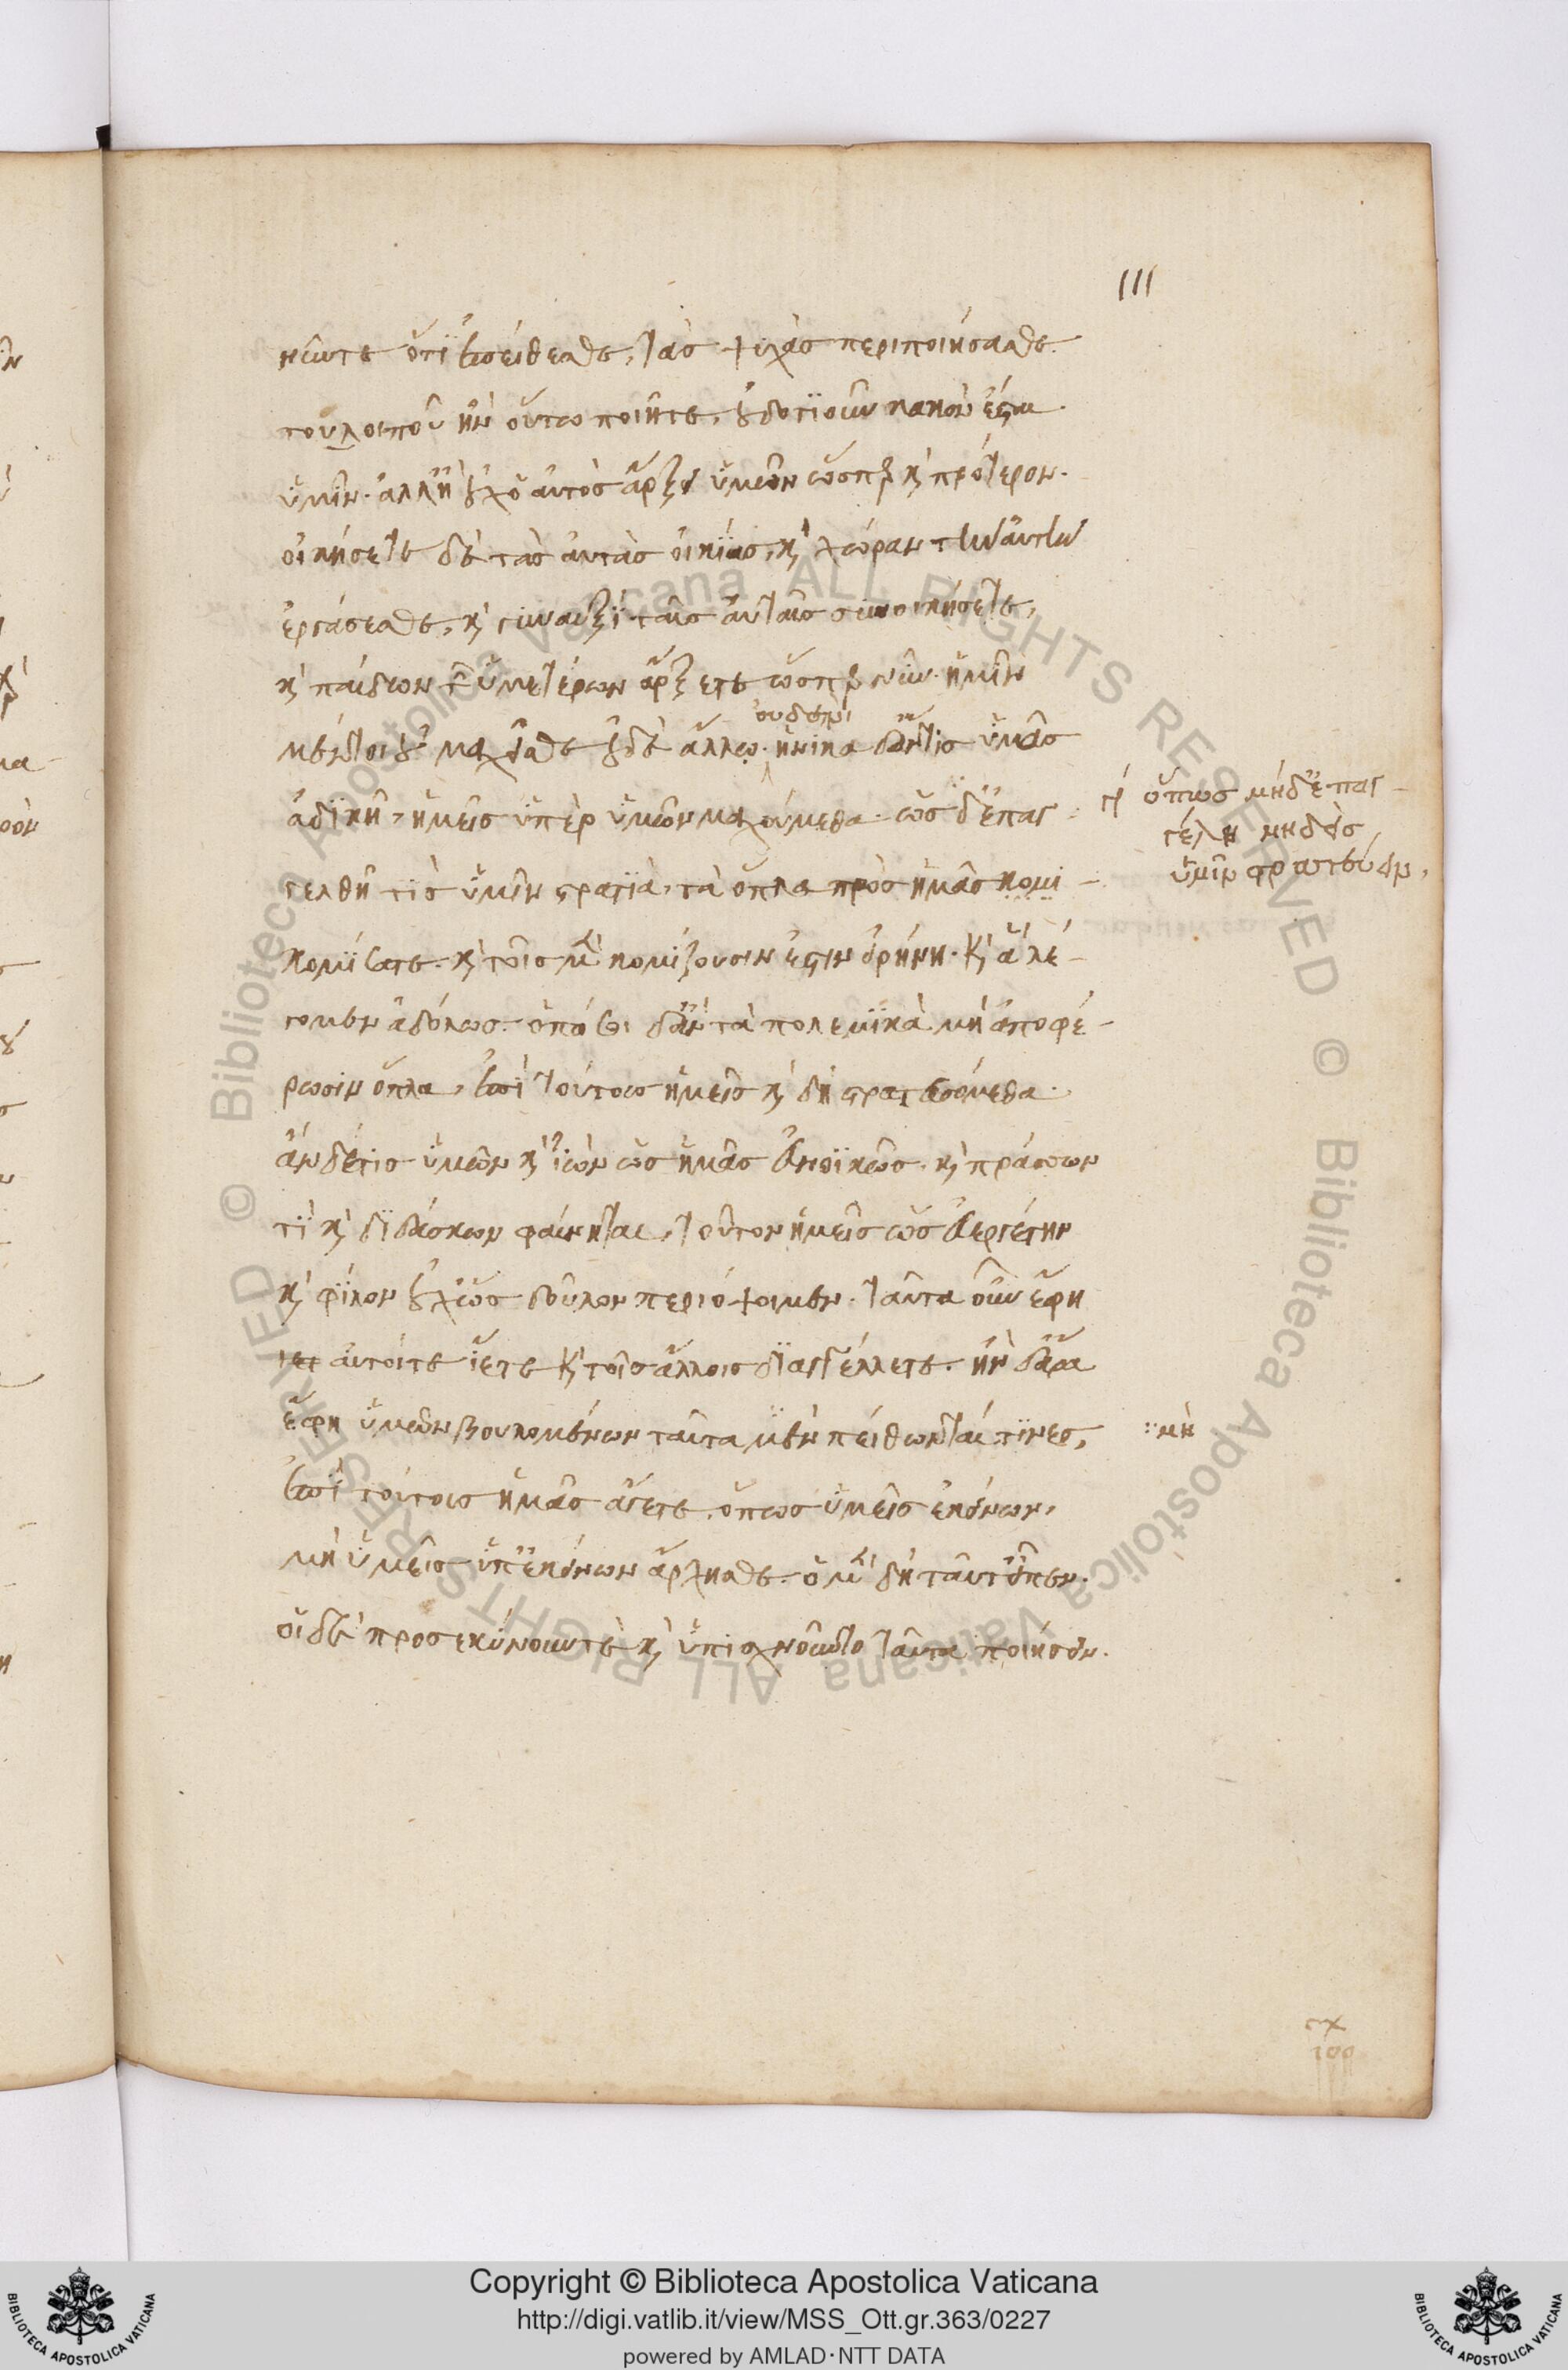 111
νῶντε ὅτι ἐπείθεσθε, τὰς ψυχὰς περιποιήσασθε.
τουλοιποῦ ἢν οὕτω ποιῆτε, οὐδοτιοῦν κακὸν ἔσται
ὑμῖν. ἀλλ' ἢ οὐχ ὁ αὐτὸς ἄρξει ὑμῶν ὥσπερ καὶ πρότερον.
οἰκήσετε δὲ τὰς αὐτὰς οἰκίας, καὶ χώραν τὴν αὐτὴν
ἐργάσεσθε, καὶ γυναιξὶ ταῖς αὐταῖς συνοικήσετε,
καὶ παίδων τῶν ὑμετέρων ἄρξετε ὥσπερ νῦν. ἡμῖν
οὐδενὶ
μέντοι οὐ μαχεῖσθε οὐδὲ ἄλλῳ. ἡνίκα δ' ἄν τις ὑμᾶς
ἀδικῇ, ἡμεῖς ὑπὲρ ὑμῶν μαχούμεθα. ὡς δ' ἐπαγ
γελθῇ τις ὑμῖν στρατιὰ, τὰ ὅπλα πρὸς ἡμᾶς κομι
κομίσατε. καὶ τοῖς μὲν κομίζουσιν ἔστιν εἰρήνη. καὶ ἃ λέ-
γομεν ἀδόλως. ὁπόσοι δ' ἂν τὰ πολεμικὰ μὴ ἀποφέ-
ρωσιν ὅπλα, ἐπὶ τούτους ἡμεῖς καὶ δὴ στρατευσόμεθα.
ἂν δέ τις ὑμῶν καὶ ἰὼν ὡς ἡμᾶς εὐνοϊκῶς. καὶ πράσσων
τὶ καὶ διδάσκων φαίνηται, τοῦτον ἡμεῖς ὡς εὐεργέτην
καὶ φίλον οὐχ ὡς δοῦλον περιόψοιμεν. ταῦτα οὖν ἔφη
αὐτοί τε ἴστε καὶ τοῖς ἄλλοις διαγγέλλετε. ἢν δ' ἄρα
ἔφη ὑμῶν βουλομένων ταῦτα μὲν πείθωνταί τινες,
ἐπὶ τούτοις ἡμᾶς ἄγετε. ὅπως ὑμεῖς ἐκείνων,
μὴ ὑμεῖς ὑπ' ἐκείνων ἄρχησθε. ὁ μὲν δὴ ταῦτ' εἶπεν.
οἱ δὲ προσεκύνουν τε καὶ ὑπισχνοῦντο ταῦτα ποιήσειν.
ὅπως μηδ' ἐπαγ
γέλῃ μηδεὶς
ὑμῖν στρατεύειν,
μὴ
Copyright © Biblioteca Apostolica Vaticana
http://digi.vatlib.it/view/MSS_Ott.gr.363/0227
powered by AMLAD·NTT DATA